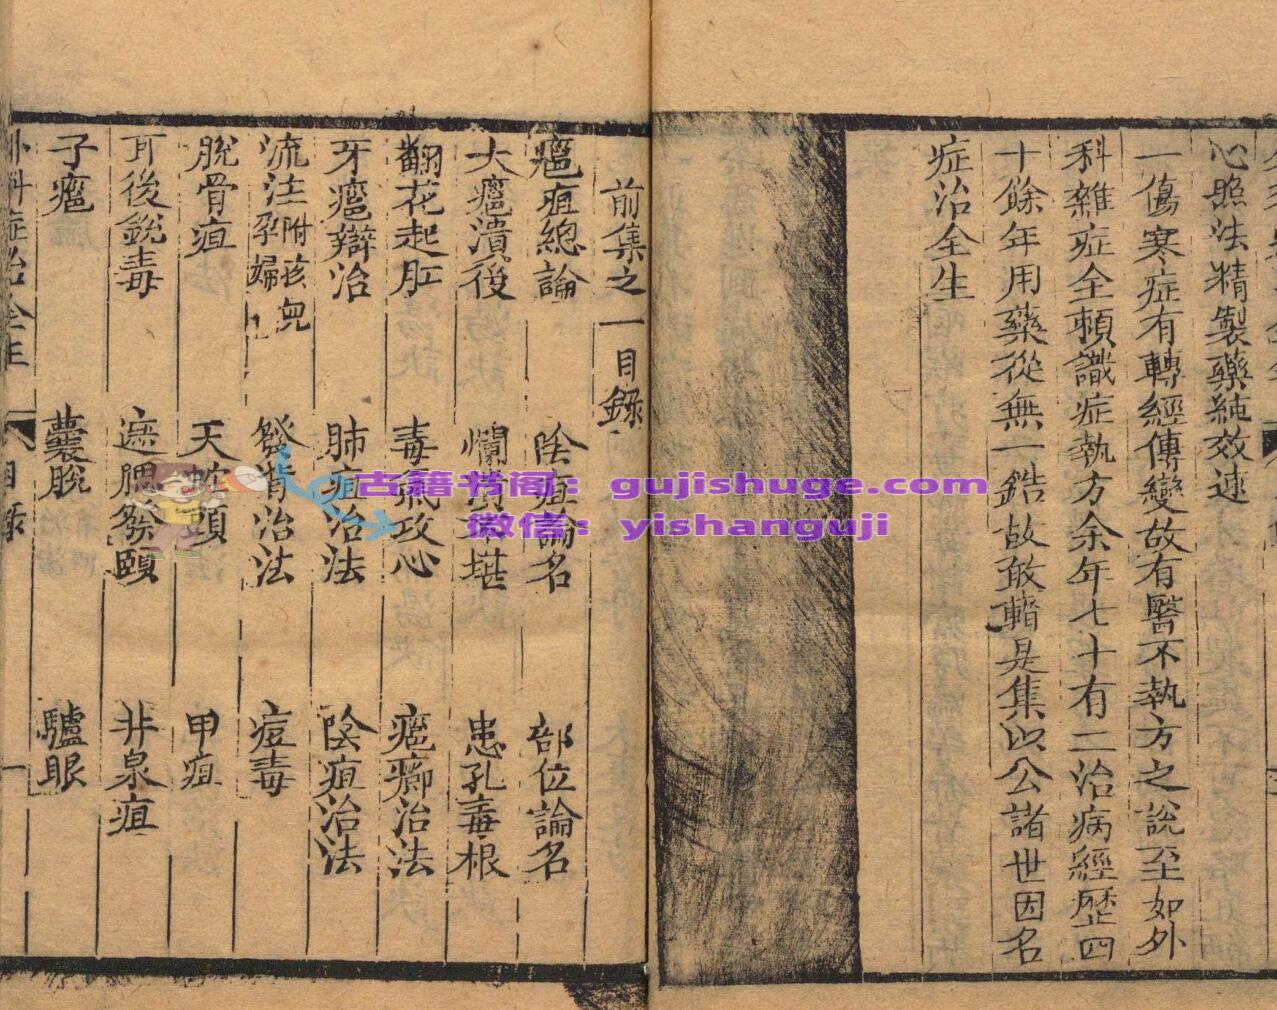 心照法精製藥純效速
一傷寒症有轉經傳變故有醫不執方之說至如外
科雜症全賴識症執方余年七十有二治病經歷四
十餘年用藥從無一錯故敢輯是集以公諸世因名
症治全生
前集之一目錄
癰疽總論 陰疽論名 部位論名
大癰潰後 爛潰不堪 患孔毒根
翻花起肛 毒氣攻心 癰癤治法
牙癰辯治 肺疽治法 陰疽治法
流注附孩兒孕婦 發背治法 痘毒
脫骨疽 天蛇頭 甲疽
耳後銳毒 遮腮發頤 井泉疽
子癰 囊脫 驢眼
外科症治全生 目錄 一
古籍书阁：gujishuge.com
微信：yishanguji